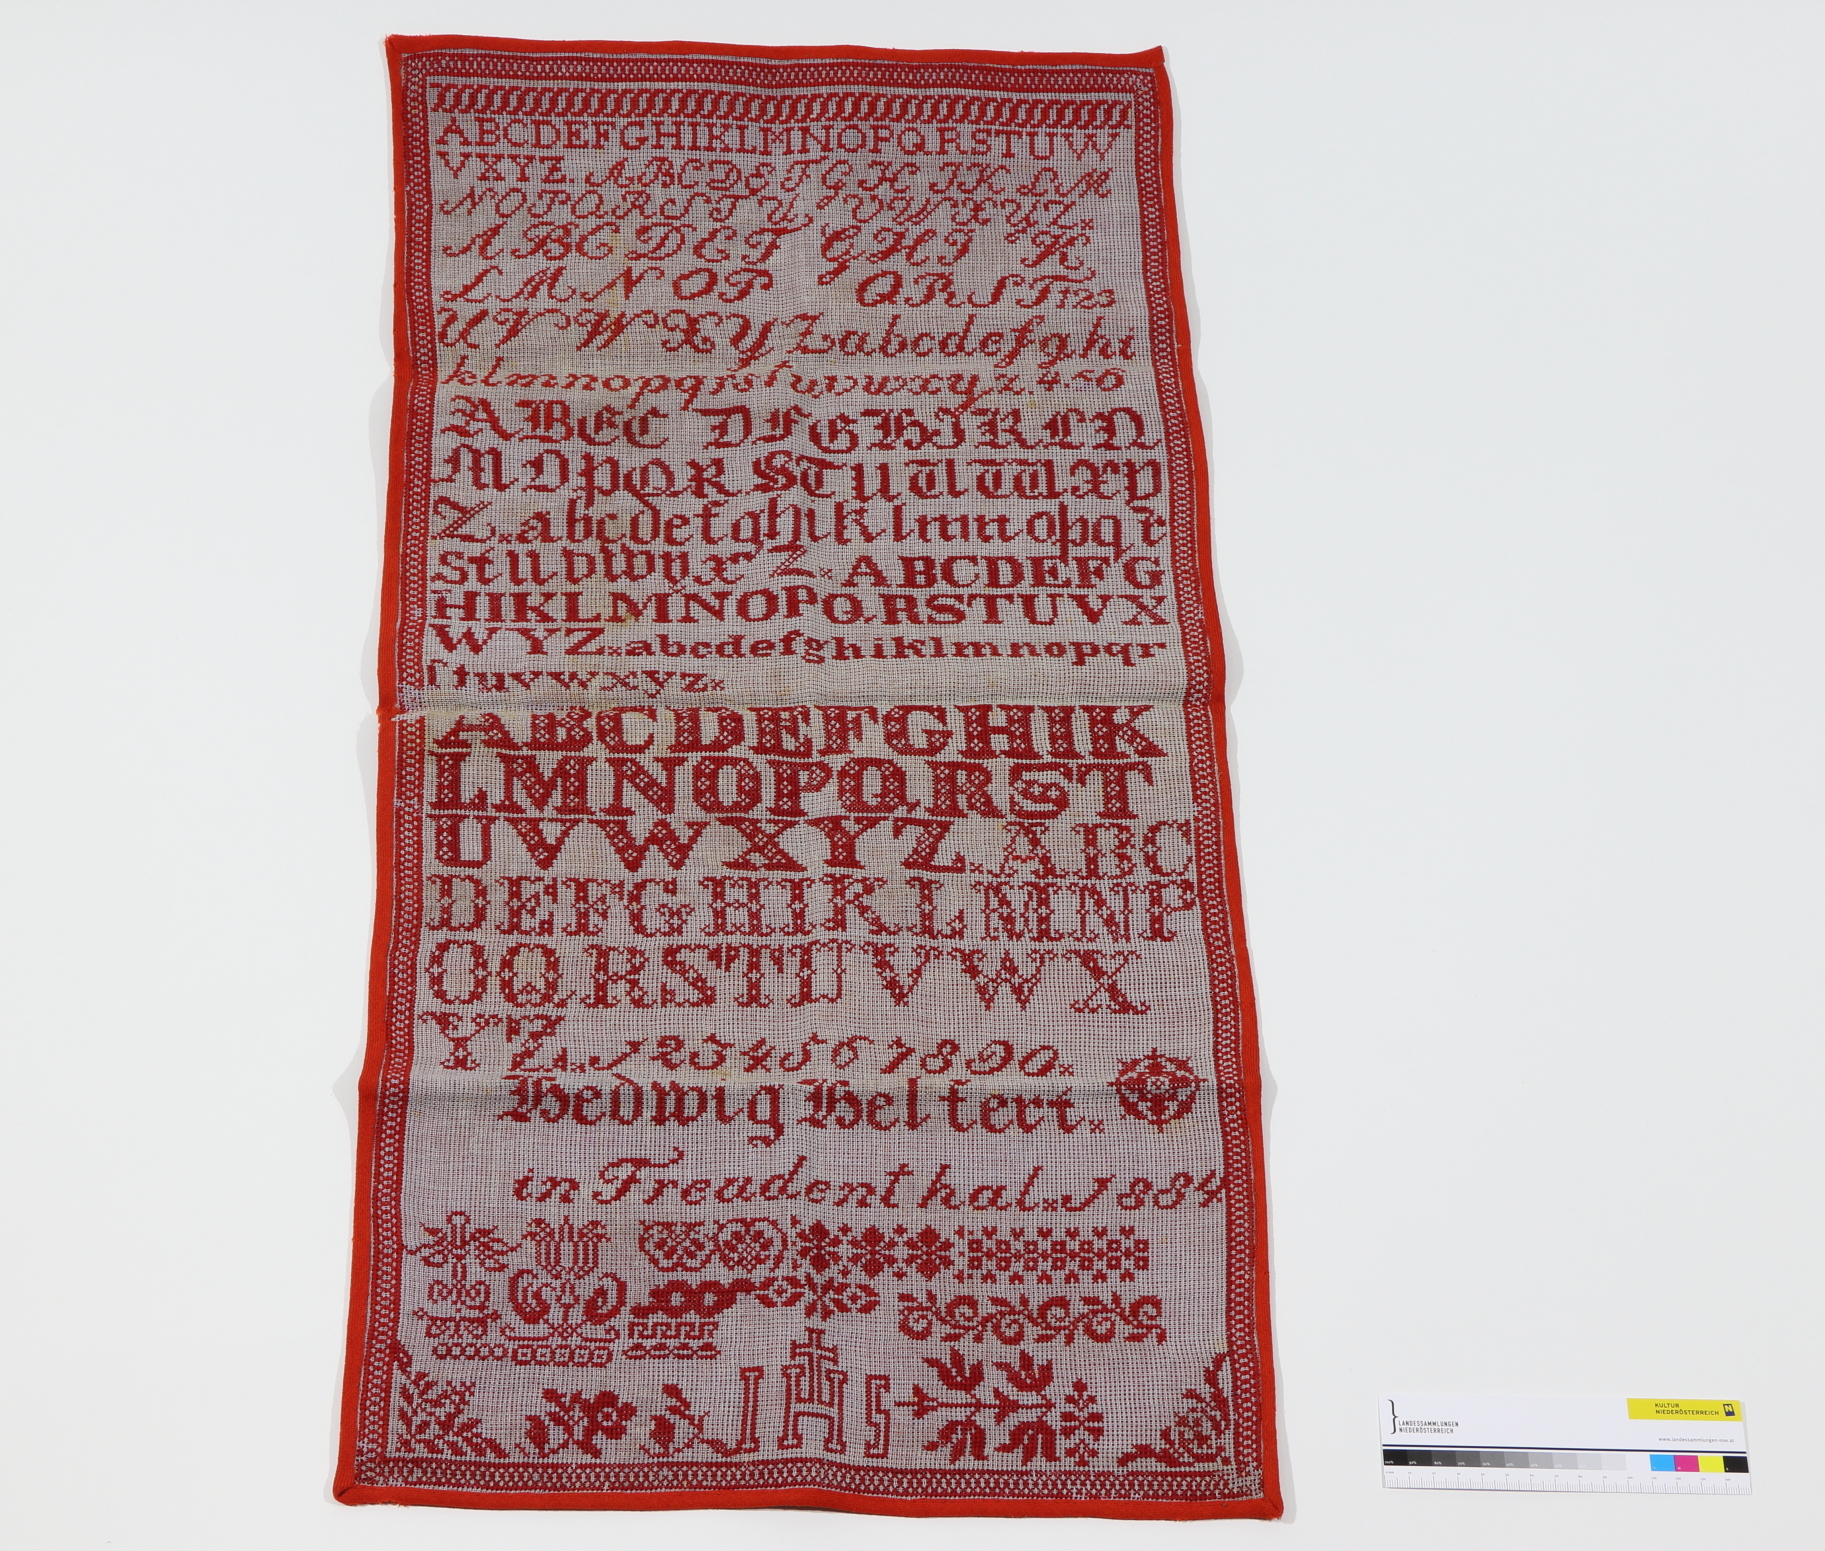 ABCDEFGHIKLMNOPQRSTUW
VXYZ. ABCDEFGHIKLM
NOPQRSTUVWXYZ.
ABCDEF GHI K
LMN OP QRST123
UVWXYZabcdefghi
klmnopqrstuvwxyz.4.56
ABEC DFGHIKLN
MOPQRSTUVWXY
Z.abcdefghiklmnopqr
stuvwyxZ.ABCDEFG
HIKLMNOPQ.RSTUVX
WYZ.abcdefghiklmnopqr
ſtuvwxyz.
ABCDEFGHIK
LMNOPQRST
UVWXYZ.ABC
DEFGHIKLMNP
OQRSTUVWX
YZ.1234567890.
Hedwig Helfert.
in Freudenthal.1884
IHS
LANDESSAMMLUNGEN
NIEDERÖSTERREICH
KULTUR
NIEDERÖSTERREICH
www.landessammlungen-noe.at